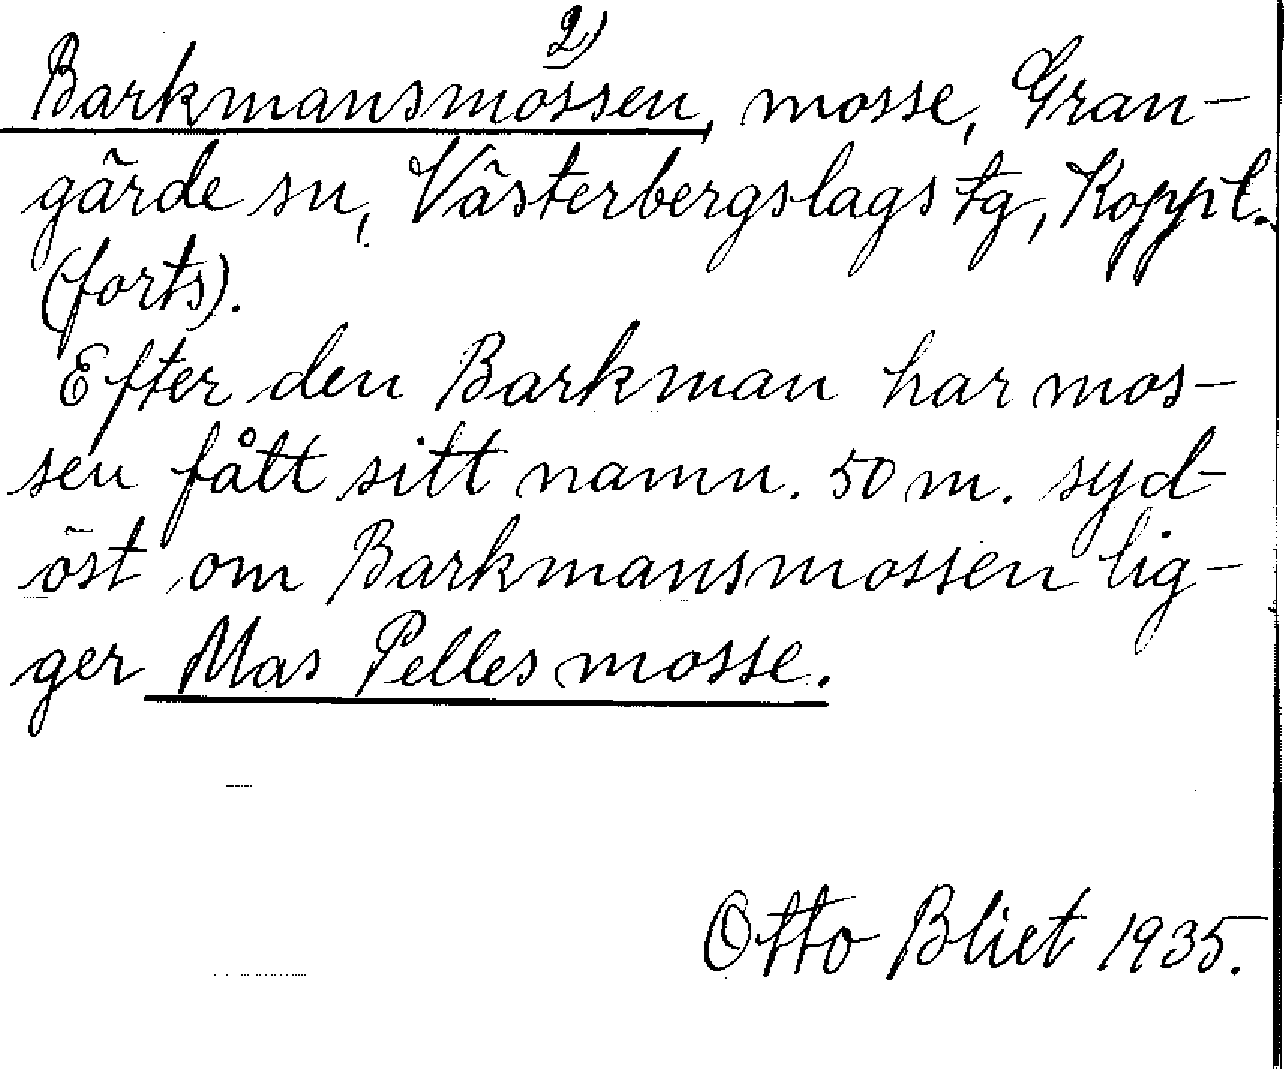 2)
Barkmansmossen, mosse, Gran-
gärde sn, Västerbergslags tg, Koppbl.
(forts).
Efter den Barkman har mos-
sen fått sitt namn. 50 m. syd-
öst om Barkmansmossen lig-
ger Mas Pelles mosse.
Otto Bliet 1935.